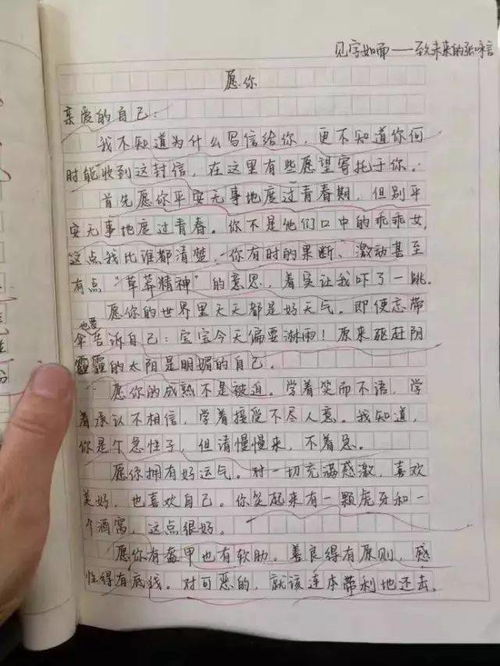 见字如面——致未来的张
愿你
亲爱的自己：
我不知道为什么写信给你，更不知道你何
时能收到这封信，在这里有些愿望寄托于你。
首先愿你平安无事地度过青春期，但别平
安无事地度过青春。你不是他们口中的乖乖女，
这点我比谁都清楚。你有时的果断、激动甚至
有点“草莽精神”的意思，着实让我吓了一跳。
愿你的世界里天天都是好天气。即便忘带
也要
伞告诉自己：宝宝今天偏要淋雨！原来驱赶阴
霾的太阳是明媚的自己。
愿你的成熟不是被迫。学着笑而不语，学
着承认不相信，学着接受不尽人意。我知道，
你是个急性子，但请慢慢来，不着急。
愿你拥有好运气。对一切充满感激，喜欢
美好，也喜欢自己。你笑起来有一颗虎牙和一
个酒窝，这点很好。
愿你有盔甲也有软肋。善良得有原则，感
性得有底线。对可恶的，就该连本带利地还去。